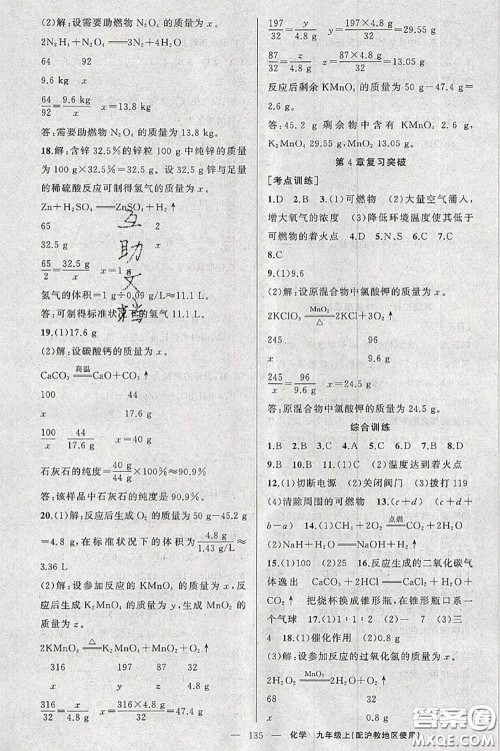 (2)解:设需要助燃物 N₂O₄ 的质量为 x。
2N₂H₄+N₂O₄══3N₂+4H₂O
64 92
9.6 kg x
64/92=9.6 kg/x x=13.8 kg
答:需要助燃物 N₂O₄ 的质量为 13.8 kg。
18.解:含锌 32.5%的锌粒 100 g 中纯锌的质量为 100 g×32.5%=32.5 g,设 32.5 g 锌与足量的稀硫酸反应可制得氢气的质量为 x。
Zn+H₂SO₄══ZnSO₄+H₂↑
65 2
32.5 g x
65/2=32.5 g/x x=1 g
氢气的体积=1 g÷0.09 g/L≈11.1 L。
答:可制得标准状况下的氢气 11.1 L。
19.(1)17.6 g
(2)解:设碳酸钙的质量为 x。
CaCO₃ 高温══CaO+CO₂↑
100 44
x 17.6 g
100/44=x/17.6 g x=40 g
石灰石的纯度=40 g/44 g×100%≈90.9%。
答:该样品中石灰石的纯度是 90.9%。
20.(1)解:反应后生成 O₂ 的质量=50 g-45.2 g=4.8 g,在标准状况下的体积为 4.8 g/1.43 g/L≈3.36 L
(2)解:设参加反应的 KMnO₄ 的质量为 x,反应后生成 K₂MnO₄ 的质量为 y,生成 MnO₂ 的质量为 z。
2KMnO₄ △══K₂MnO₄+MnO₂+O₂↑
316 197 87 32
x y z 4.8 g
316/32=x/4.8 g x=316×4.8 g/32=47.4 g
197/32=y/4.8 g y=197×4.8 g/32=29.55 g
87/32=z/4.8 g z=87×4.8 g/32=13.05 g
反应后剩余 KMnO₄ 的质量为 50 g-47.4 g=2.6 g。
答:45.2 g 剩余物中含有 KMnO₄ 2.6 g,K₂MnO₄ 29.55 g,MnO₂ 13.05 g。
第 4 章复习突破
[考点训练]
1.D 2.D 3.(1)可燃物 (2)大量空气涌入,增大氧气的浓度 (3)降低环境温度使其低于可燃物的着火点 4.D 5.N₂ 6.A 7.C
8.C
9.(1)9.6
(2)解:设原混合物中氯酸钾的质量为 x。
2KClO₃ MnO₂△══2KCl+3O₂↑
245 96
x 9.6 g
245/96=x/9.6 g x=24.5 g。
答:原混合物中氯酸钾的质量为 24.5 g。
综合训练
1.B 2.A 3.C 4.B 5.C 6.B 7.C 8.D
9.B 10.B 11.(1)可燃物 (2)温度达到着火点
12.(1)切断电源 (2)关闭阀门 (3)拨打 119
(4)清除周围的可燃物 13.(c+d) (c+d+b-a) 14.(1)CH₄+2O₂ 点燃══CO₂+2H₂O
(2)NaH+H₂O══NaOH+H₂↑
15.(1)100 (2)25 16.反应生成的二氧化碳气体逸出 CaCO₃+2HCl══CaCl₂+H₂O+CO₂↑ 把烧杯换成锥形瓶,在锥形瓶口系一个气球 17.(1)1∶1∶2 (2)一 7 (3)4 18.(1)催化作用 (2)0.8 g
(3)解:设参加反应的过氧化氢的质量为 x。
2H₂O₂ MnO₂══2H₂O+O₂↑
68 32
x 0.8 g
互助文档
— 135 — 化学 九年级上(配沪教地区使用)
答案圈
MXQE.COM